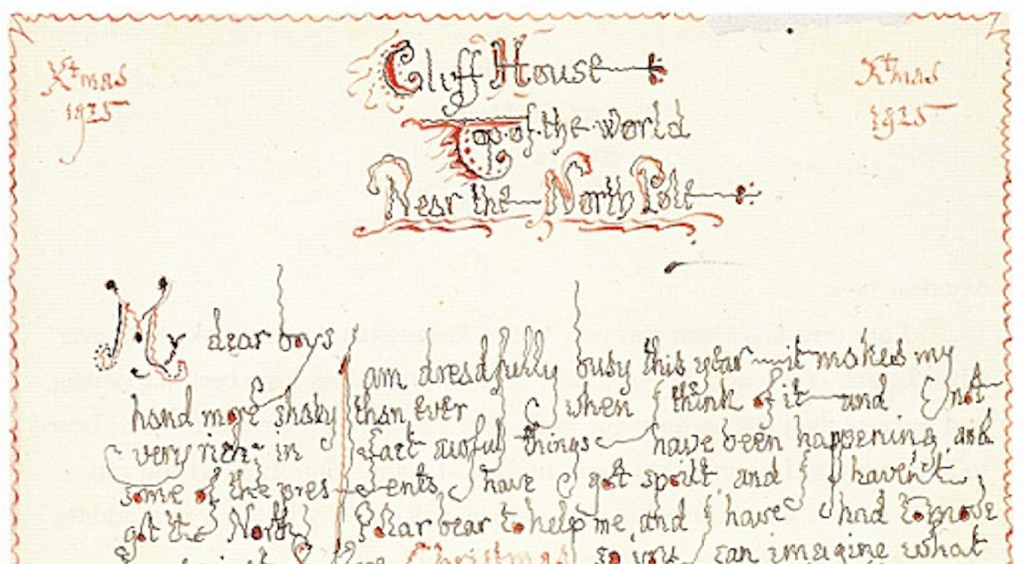 Xmas
1925
Cliff House
Top of the World
Near the North Pole
Xmas
1925
My dear boys
I am dreadfully busy this year — it makes my
hand more shaky than ever when I think of it — and not
very rich in fact awful things have been happening and
some of the presents have got spoilt and I haven't
got the North Polar bear to help me and I have had to move
Christmas so you can imagine what